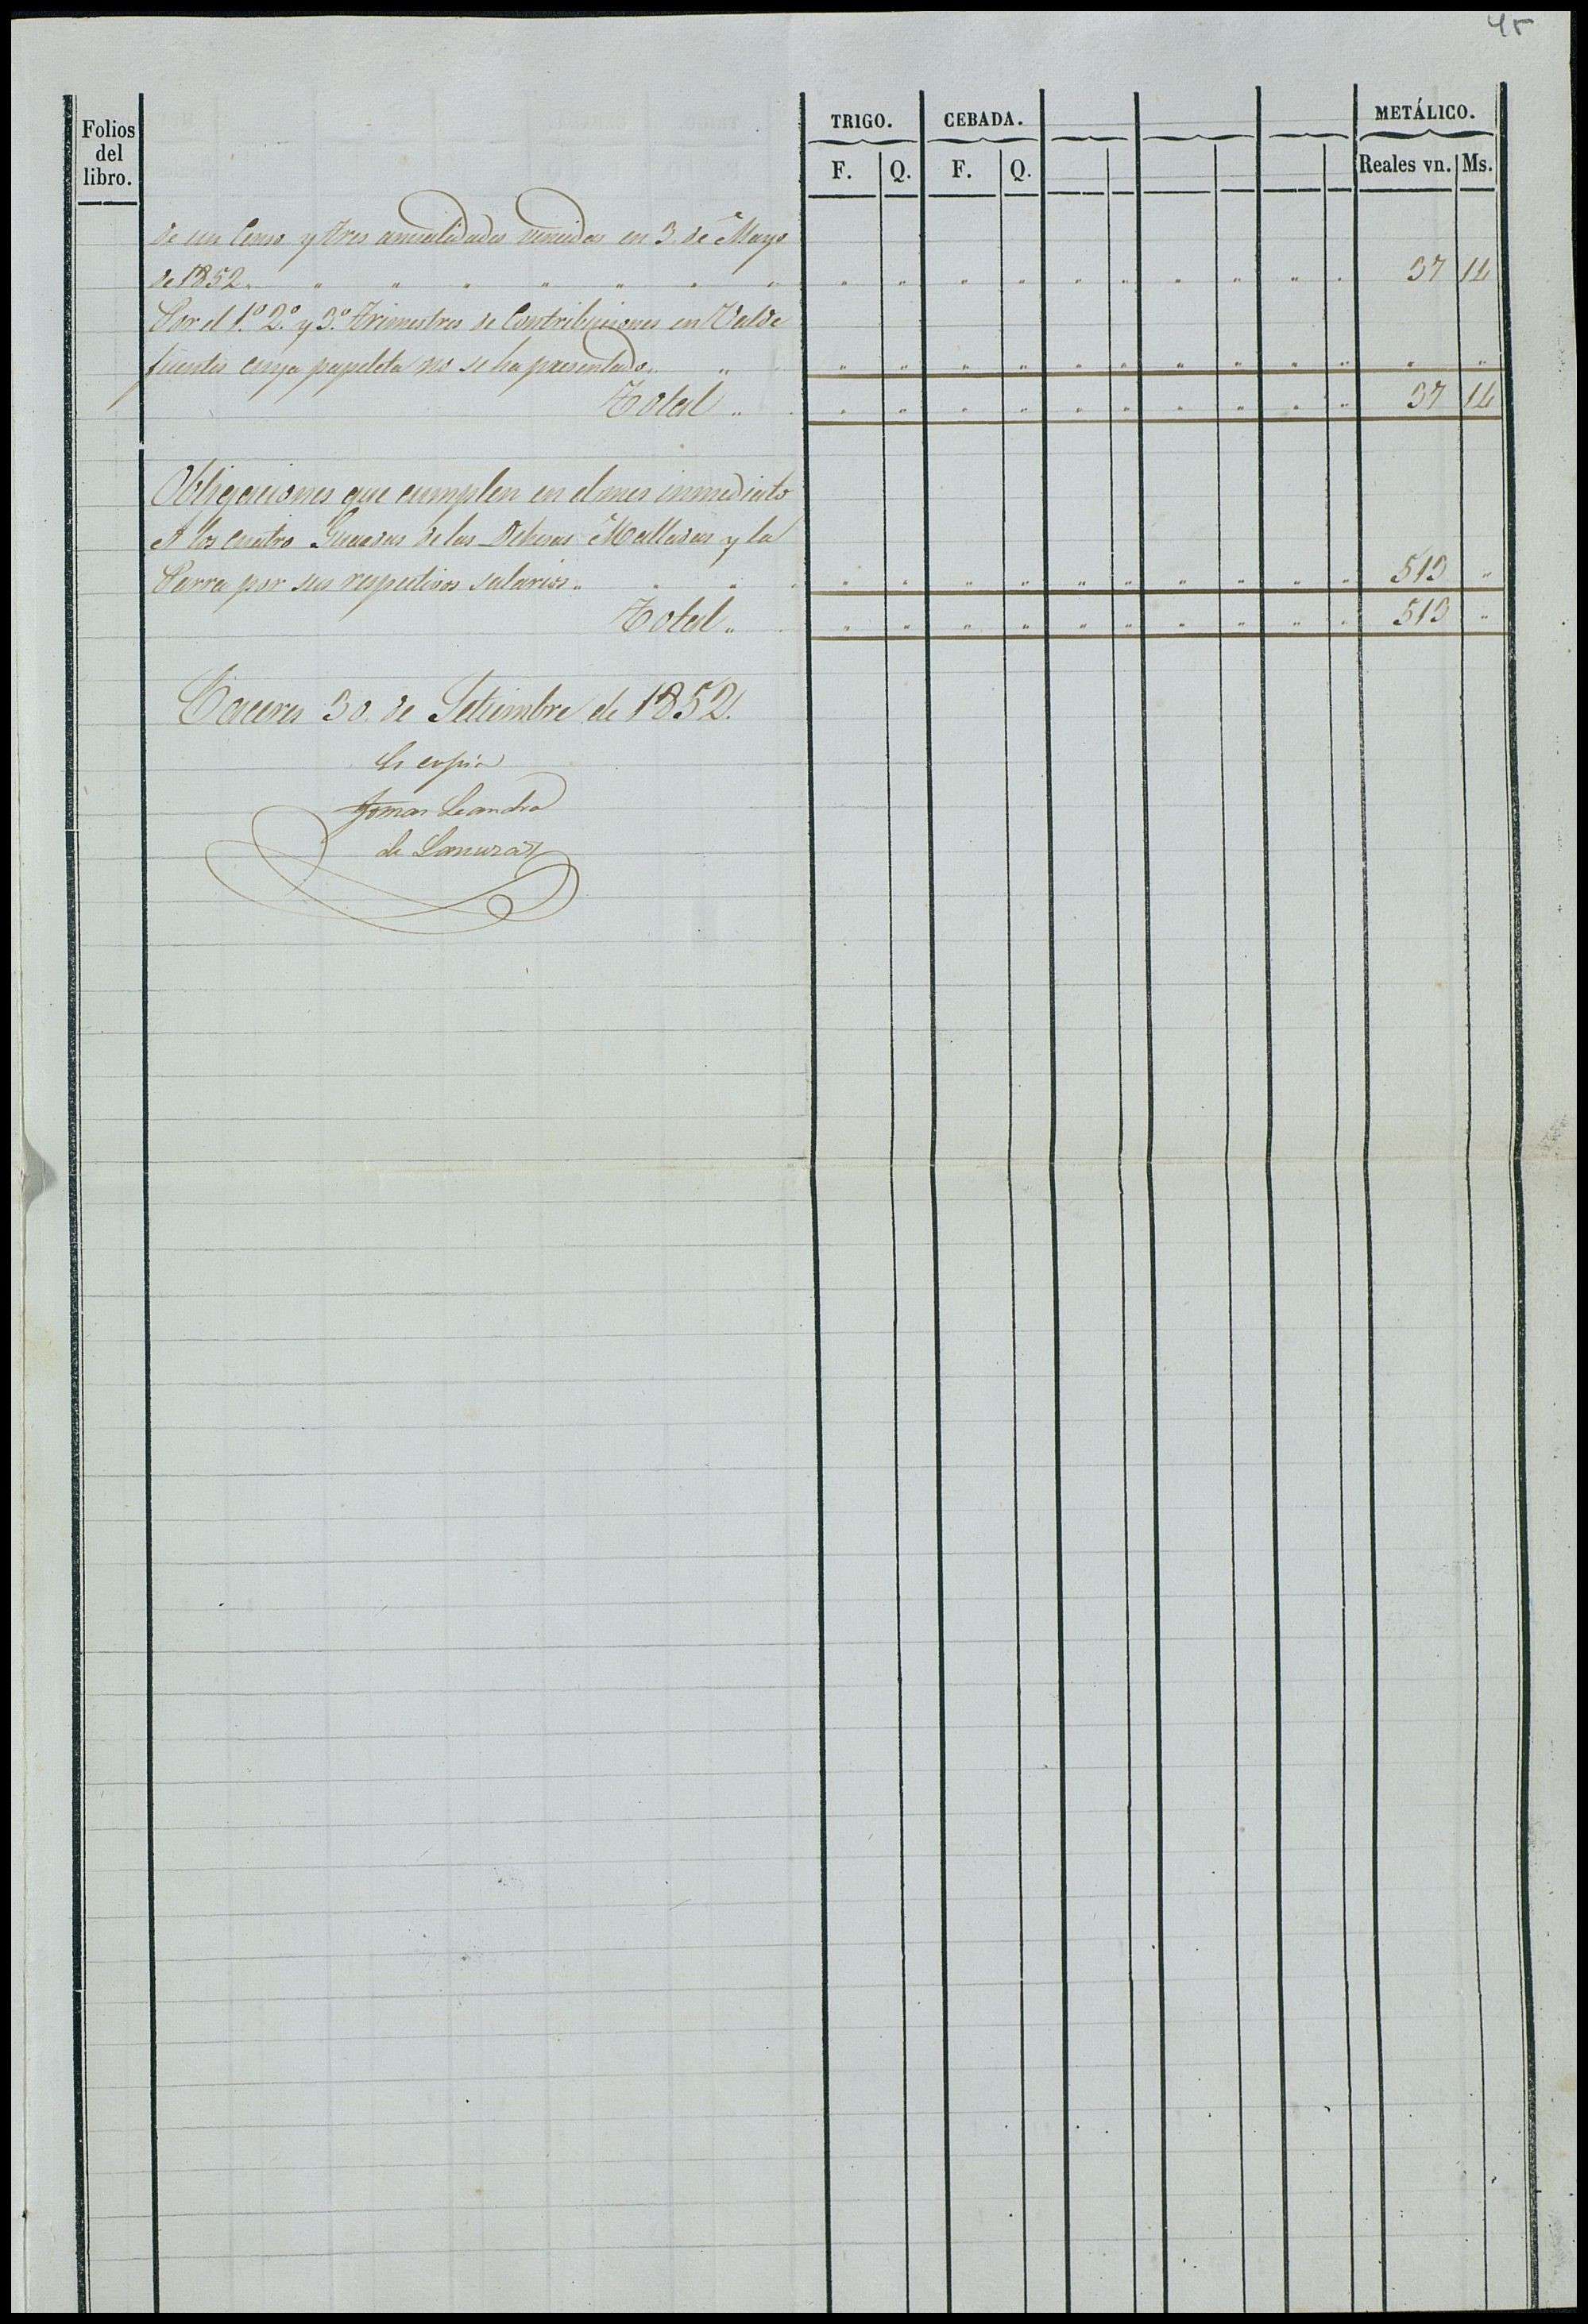 45
Folios
del
libro.
TRIGO. CEBADA. METÁLICO.
F. Q. F. Q. Reales vn. Ms.
de un Censo y tres anualidades vencidas en 3. de Mayo
de 1852. " " " " " " " " " " " " " " " " " 37 14
Por el 1.º 2.º y 3.º trimestres de Contribuciones en Valde
fuentes cuya papeleta no se ha presentado. " " " " " " " " " " " " "
Total " " " " " " " " " " " 37 14
Obligaciones que cumplen en el mes inmediato
A los cuatro Guardas de las Dehesas Malladas y la
Parra por sus respectivos salarios. " " " " " " " " " " " " 513 "
Total " " " " " " " " " " " 513 "
Caceres 30. de Setiembre de 1852.
Es copia
Leandro
de